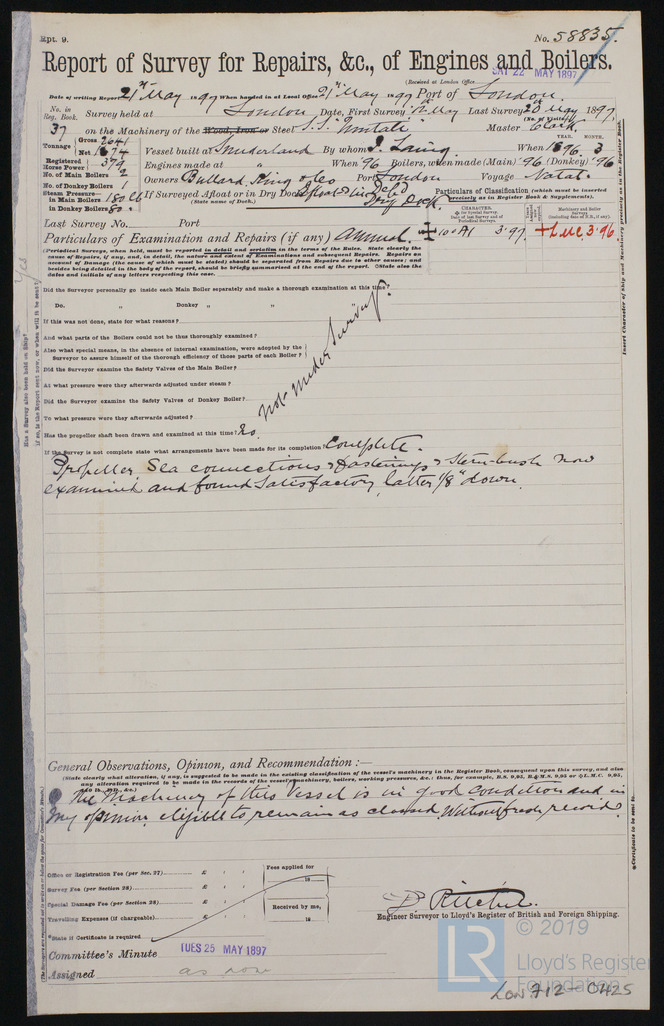 Rpt. 9. No. 58835.
Report of Survey for Repairs, &c., of Engines and Boilers.
(Received at London Office SAT 22 MAY 1897
Date of writing Report 21st May 1897 When handed in at Local Office 21st May 1897 Port of London
No. in Reg. Book. Survey held at London Date, First Survey May Last Survey 20th May 1897
(No. of Visits)
37 on the Machinery of the Wood, Iron or Steel S.S. Umtali Master Clark
Tonnage Gross 2641 Net 1674 Vessel built at Sunderland By whom J. Laing When 1896 MONTH. 3
Registered Horse Power 379 Engines made at " When 96 Boilers, when made (Main) 96 (Donkey) 96
No. of Main Boilers 2 Owners Bullard King & Co Port London Voyage Natal
No. of Donkey Boilers 1
Steam Pressure in Main Boilers 180 lb in Donkey Boilers 80 If Surveyed Afloat or in Dry Dock Afloat & in Dry Dock
(State name of Dock.)
Particulars of Classification (which must be inserted precisely as in Register Book & Supplements).
Last Survey No. Port
Particulars of Examination and Repairs (if any) Annual 100A1 3.97 + LMC 3.96
(Periodical Surveys, when held, must be reported in detail and seriatim in the terms of the Rules. State clearly the
cause of Repairs, if any, and, in detail, the nature and extent of Examinations and subsequent Repairs. Repairs on
account of Damage (the cause of which must be stated) should be separated from Repairs due to other causes; and
besides being detailed in the body of the report, should be briefly summarised at the end of the report. State also the
dates and initials of any letters respecting this case.
Did the Surveyor personally go inside each Main Boiler separately and make a thorough examination at this time?
Do. " Donkey " "
If this was not done, state for what reasons?
And what parts of the Boilers could not be thus thoroughly examined?
Also what special means, in the absence of internal examination, were adopted by the
Surveyor to assure himself of the thorough efficiency of those parts of each Boiler?
Did the Surveyor examine the Safety Valves of the Main Boiler?
At what pressure were they afterwards adjusted under steam?
Did the Surveyor examine the Safety Valves of Donkey Boiler?
To what pressure were they afterwards adjusted?
Not under Survey
Has the propeller shaft been drawn and examined at this time? No.
If the Survey is not complete state what arrangements have been made for its completion Complete.
Propeller Sea connections & fastenings & Stern bush now
examined and found Satisfactory, latter 1/8" down.
General Observations, Opinion, and Recommendation:—
(State clearly what alteration, if any, is suggested to be made in the existing classification of the vessel's machinery in the Register Book, consequent upon this survey, and also
any alteration required to be made in the records of the vessel's machinery, boilers, working pressures, &c.: thus, for example, B.S. 9,95, B.&M.S. 9,95 or L.M.C. 9,95,
The Machinery of this Vessel is in good condition and in
my opinion eligible to remain as classed Without fresh record.
Office or Registration Fee (per Sec. 27) £ Fees applied for
Survey Fee (per Section 28) £ 18
Special Damage Fee (per Section 28) £ Received by me,
Travelling Expenses (if chargeable) £ 18
*State if Certificate is required
D. Ritchie.
Engineer Surveyor to Lloyd's Register of British and Foreign Shipping.
Committee's Minute TUES 25 MAY 1897
Assigned as now
© 2019
LR Lloyd's Register Foundation
LON 712-0425